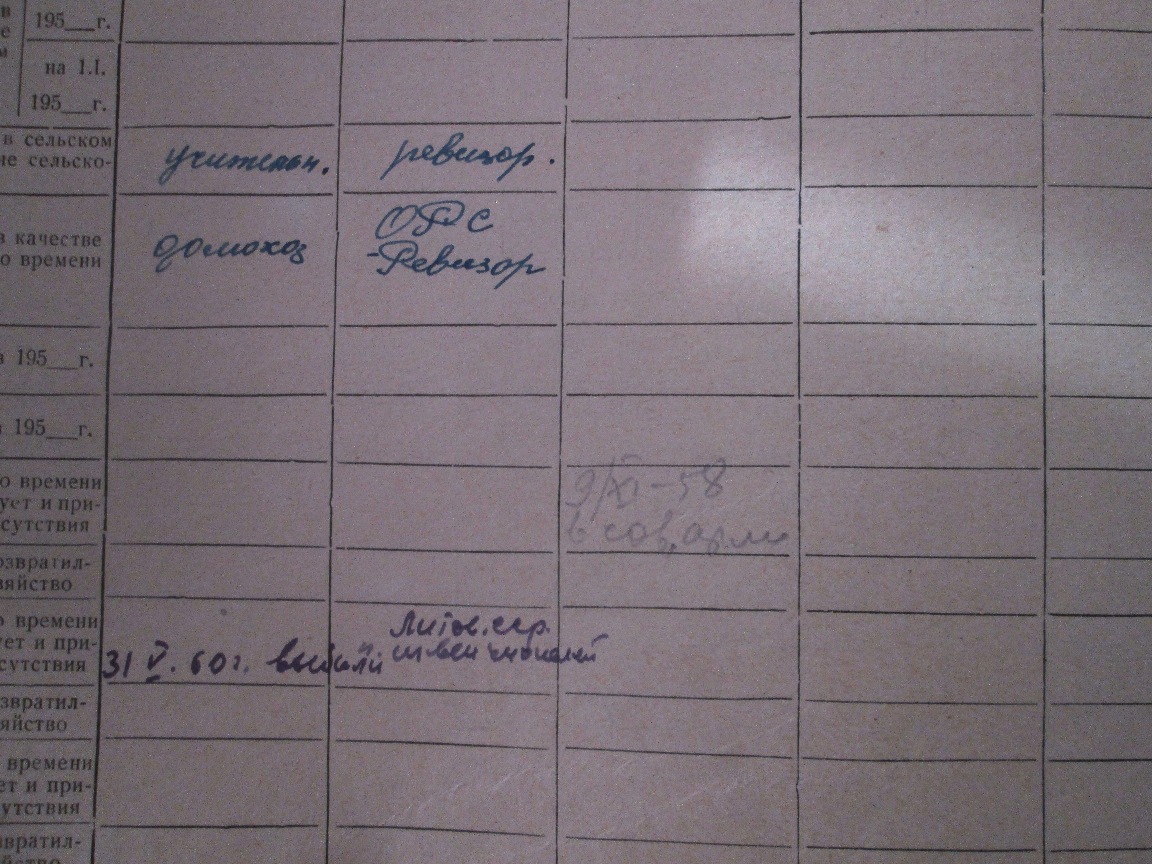 195__г.
на 1.I.
195__г.
в сельском
сельско-
учительн. ревизор.
ОРС
в качестве
о времени
домохоз -Ревизор
195__г.
195__г.
о времени
ует и при-
сутствия
9/XI-58
в сов, арми
озвратил-
зяйство
о времени
ует и при-
сутствия
Литов. сср.
31 V. 60 г. выбыли
звратил-
яйство
времени
ет и при-
утствия
вратил-
йство